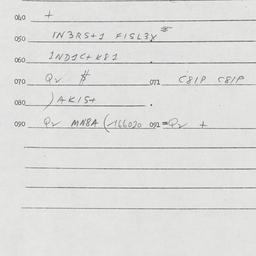 040 +
050 IN3RS+1 F1SL3Y
060 IND1C+ K81
070 Qr $ 071 C81P C81P
080 )AK1S+ .
090 Qr MN8A (166020 091 =Qr +